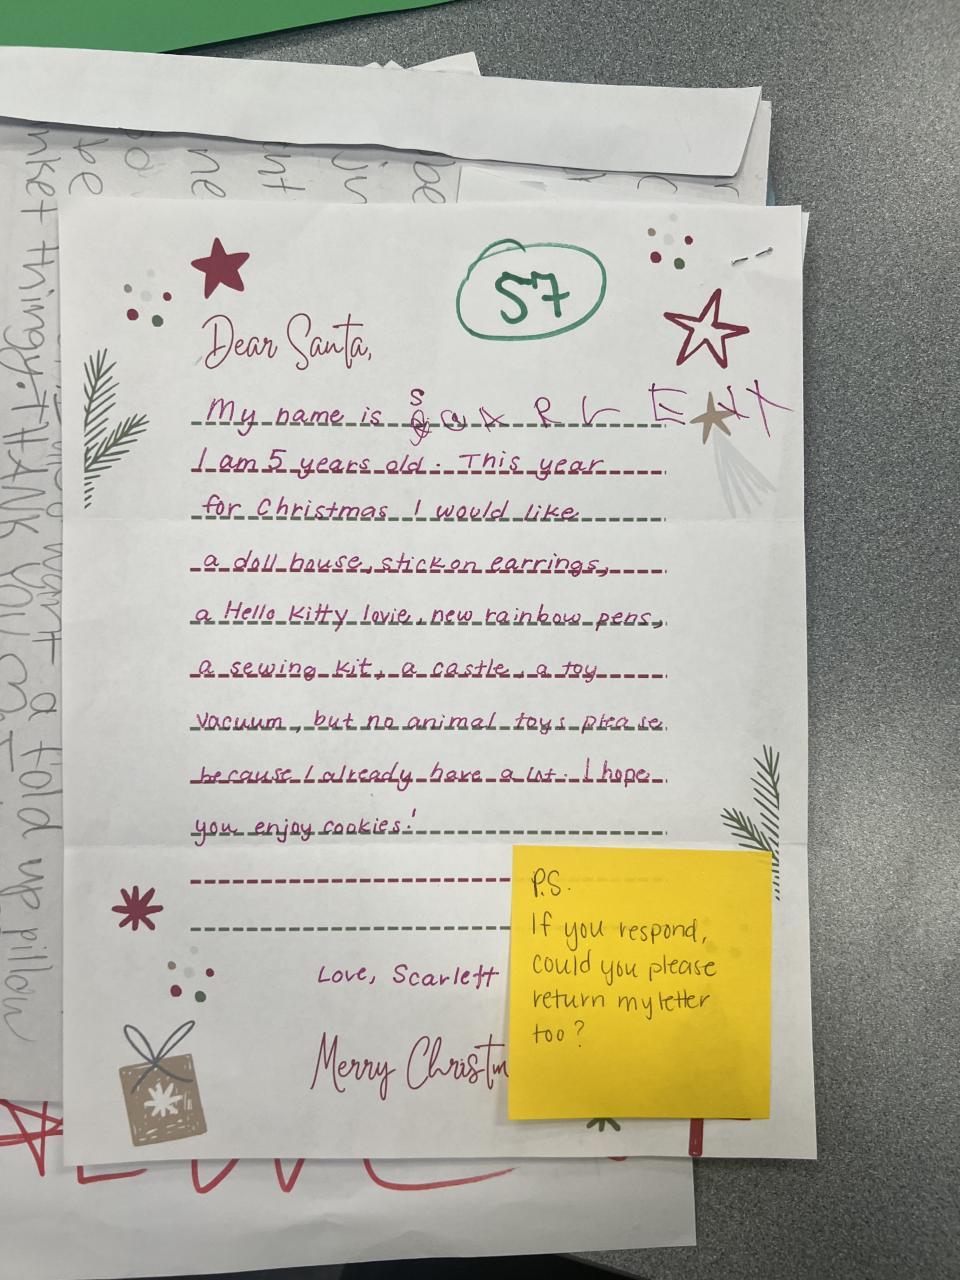 57
Dear Santa,
My name is SCARLETT
I am 5 years old. This year
for Christmas I would like
a doll house, stick on earrings,
a Hello Kitty lovie, new rainbow pens,
a sewing kit, a castle, a toy
vacuum, but no animal toys please
because I already have a lot. I hope
you enjoy cookies!
Love, Scarlett
Merry Christm
P.S.
If you respond,
could you please
return my letter
too?
thingy. THANK YOU
want a fold up pillow